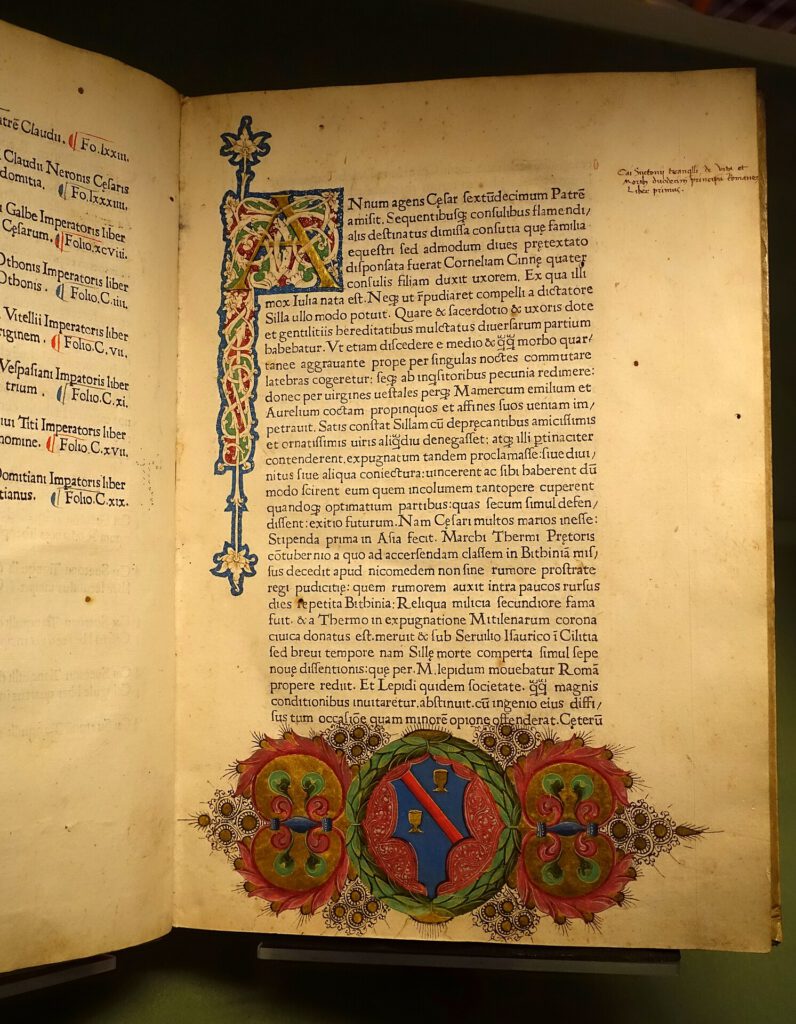 atrē Claudii. Fo.lxxiii.
Claudii Neronis Cęsaris
domitia. Fo.lxxxiiii.
Galbe Imperatoris liber
Cęsarum. Folio.xcviii.
Othonis Imperatoris liber
Othonis. Folio.C.iiii.
Vitellii Imperatoris liber
riginem. Folio.C.vii.
Vespasiani Impatoris liber
trium. Folio.C.xi.
Titi Imperatoris liber
nomine. Folio.C.xvii.
Domitiani Impatoris liber
tianus. Folio.C.xix.
de Vita et
duodecim
Liber primus.
ANnum agens Cęsar sextūdecimum Patrē
amisit. Sequentibusq; consulibus flamendi/
alis destinatus dimissa consutia quę familia
equestri sed admodum diues prętextato
disponsata fuerat Corneliam Cinnę quater
consulis filiam duxit uxorem. Ex qua illi
mox Iulia nata est. Neq; ut r̄pudiaret compelli a dictatore
Silla ullo modo potuit. Quare & sacerdotio & uxoris dote
et gentilitiis hereditatibus mulctatus diuersarum partium
habebatur. Vt etiam discedere e medio & q̄q̄ morbo quar/
tanee aggrauante prope per singulas noctes commutare
latebras cogeretur: seq; ab inq̄sitoribus pecunia redimere:
donec per uirgines uestales perq; Mamercum emilium et
Aurelium coctam propinquos et affines suos ueniam im/
petrauit. Satis constat Sillam cū deprecantibus amicissimis
et ornatissimis uiris aliq̄diu denegasset: atq; illi ptinaciter
contenderent, expugnatum tandem proclamasse: siue diui/
nitus siue aliqua coniectura: uincerent ac sibi haberent dū
modo scirent eum quem incolumem tantopere cuperent
quandoq; optimatium partibus: quas secum simul defen/
dissent: exitio futurum. Nam Cęsari multos marios inesse:
Stipenda prima in Asia fecit. Marchi Thermi Prętoris
cōtubernio a quo ad accersendam classem in Bithiniā mis/
sus decedit apud nicomedem non sine rumore prostrate
regi pudicitię: quem rumorem auxit intra paucos rursus
dies repetita Bithinia: Reliqua milicia secundiore fama
fuit. & a Thermo in expugnatione Mitilenarum corona
ciuica donatus est. meruit & sub Seruilio Isaurico ī Cilitia
sed breui tempore nam Sillę morte comperta simul sepe
nouę dissentionis: quę per. M. lepidum mouebatur Romā
propere rediit. Et Lepidi quidem societate. q̄q̄ magnis
conditionibus inuitaretur, abstinuit. cū ingenio eius diffi/
sus tum occasione quam minorē opione offenderat. Cęterū